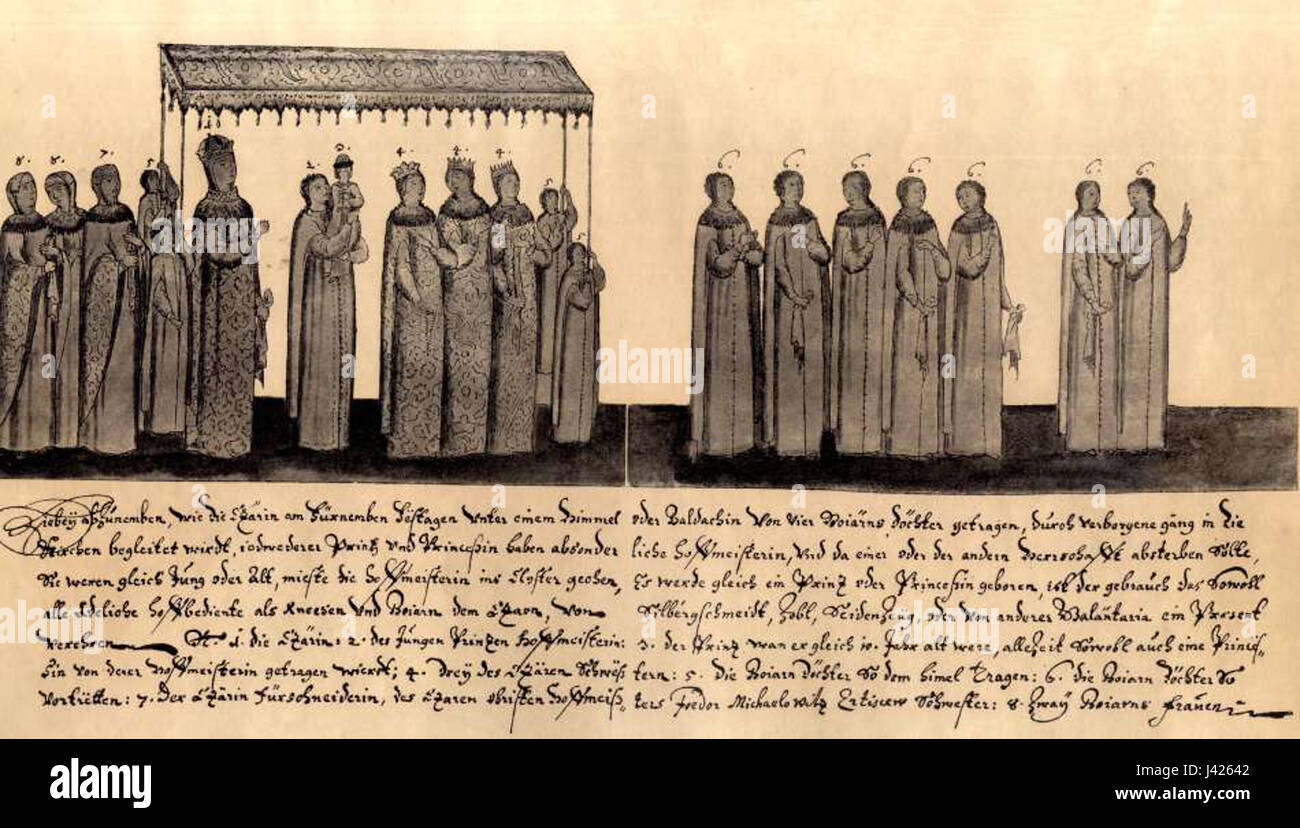 8. 8. 7. 5. 1. 2. 3. 4. 4. 4. 5. 5. 6. 6. 6. 6. 6. 6. 6.
Hiebey abzunemben, wie die Czärin am fürnemben Festagen unter einem Himmel oder Baldachin von vier Boiärns döchter getragen, durch verborgene gäng in die
Kirchen begleitet wirdt, iedwederer Printz und Princeßin haben absonderliche Hoffmeisterin, Und da einer oder der andern Herrschafft absterben solte,
Sie weren gleich Jung oder Alt, mieste die Hoffmeisterin ins Closter gechen, Es werde gleich ein Printz oder Princeßin geboren, ist der gebrauch das Sowohl
alle Adeliche Hoffbediente als Kneesen und Boiarn dem Czaren, von Silbergschmeidt, Zobl, Seidenzeug, oder von anderer Galanteria ein Present
verehren No. 1. die Czärin: 2. des Jungen Printzen Hoffmeisterin: 3. der Printz wan er gleich 10. Jahr alt were, allezeit Sowohl auch eine Princeß-
ßin von derer Hoffmeisterin getragen wierdt; 4. Drey des Czären Schwestern: 5. die Boiarn Döchter So dem himel Tragen: 6. die Boiarn Döchter So
vortretten: 7. Der Czärin Fürschneiderin, des Czaren obristen Hoffmeisters Fedor Michaelowitz Ertiscew Schwester: 8. Zway Boiarns frauen
alamy
alamy stock photo
J42642
www.alamy.com